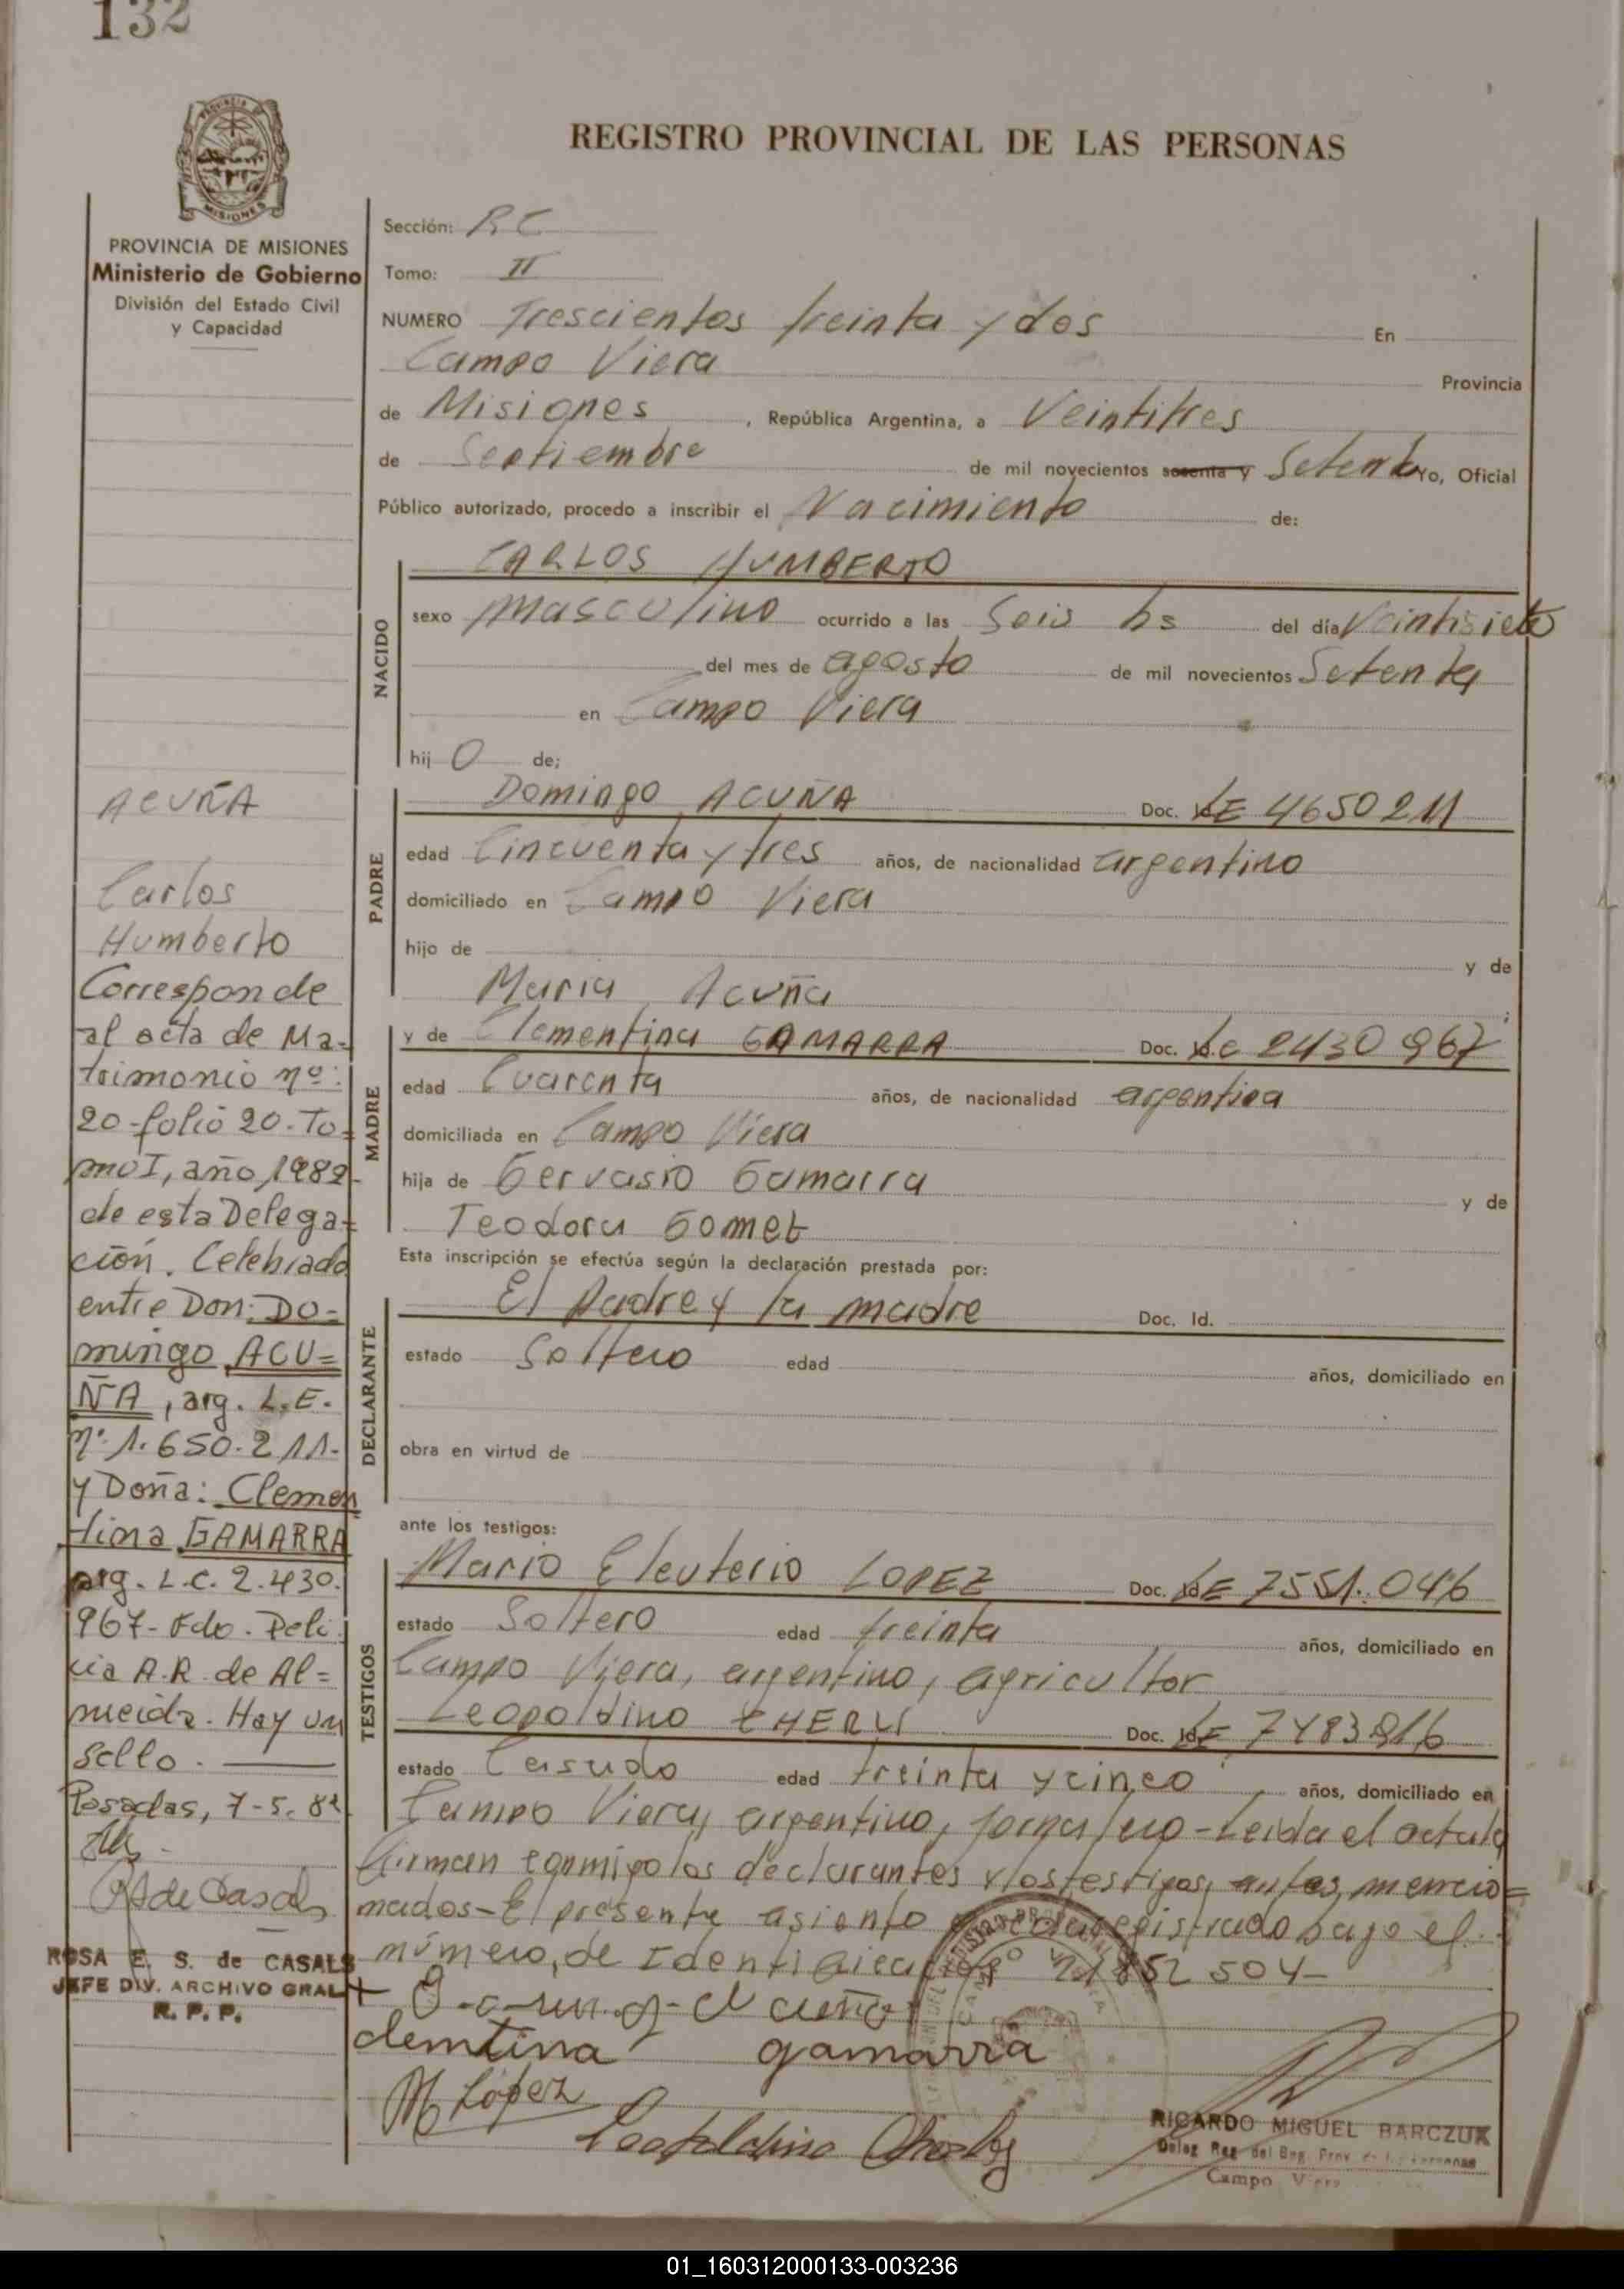 132
REGISTRO PROVINCIAL DE LAS PERSONAS
PROVINCIA DE MISIONES
Ministerio de Gobierno
División del Estado Civil
y Capacidad
Sección: RC
Tomo: II
NUMERO Trescientos treinta y dos En
Campo Viera Provincia
de Misiones, República Argentina, a Veintitres
de Septiembre de mil novecientos sesenta y Setenta Yo, Oficial
Público autorizado, procedo a inscribir el Nacimiento de:
NACIDO
CARLOS HUMBERTO
sexo masculino ocurrido a las Seis hs del día Veintisiete
del mes de agosto de mil novecientos Setenta
en Campo Viera
hij O de;
PADRE
Domingo ACUÑA Doc. LE 4650211
edad Cincuenta y tres años, de nacionalidad argentino
domiciliado en Campo Viera
hijo de y de
Maria Acuña
MADRE
y de Clementina GAMARRA Doc. Lc 2430967
edad Cuarenta años, de nacionalidad argentina
domiciliada en Campo Viera
hija de Gervasio Gamarra y de
Teodora Gomet
Esta inscripción se efectúa según la declaración prestada por:
DECLARANTE
El padre y la madre Doc. Id.
estado Soltero edad años, domiciliado en
obra en virtud de
ante los testigos:
TESTIGOS
Mario Eleuterio LOPEZ Doc. LE 7551.046
estado Soltero edad treinta años, domiciliado en
Campo Viera, argentino, agricultor
Leopoldino Doc. LE 7483916
estado Casado edad treinta y cinco años, domiciliado en
Campo Viera, argentino, jornalero - Leida el acta la
firman conmigo los declarantes y los testigos antes mencio=
nados - El presente asiento queda registrado bajo el
número de Identificacion 21852504-
clemtina gamarra
M López
Leopoldino
RICARDO MIGUEL BARCZUK
Campo Viera
ACUÑA
Carlos
Humberto
Corresponde
al acta de Ma-
trimonio nº:
20-folio 20-To=
mo I, año 1982-
de esta Delega=
ción. Celebrado
entre Don: DO=
mingo ACU=
ÑA, arg. L.E.
nº 1.650.211-
y Doña: Clemen
tina GAMARRA
arg. L.C. 2.430.
967- Fdo. Deli
cia A.R. de Al=
meida. Hay un
sello.
Posadas, 7-5-82
ROSA E. S. de CASALS
JEFE DIV. ARCHIVO GRAL
R. P. P.
01_160312000133-003236